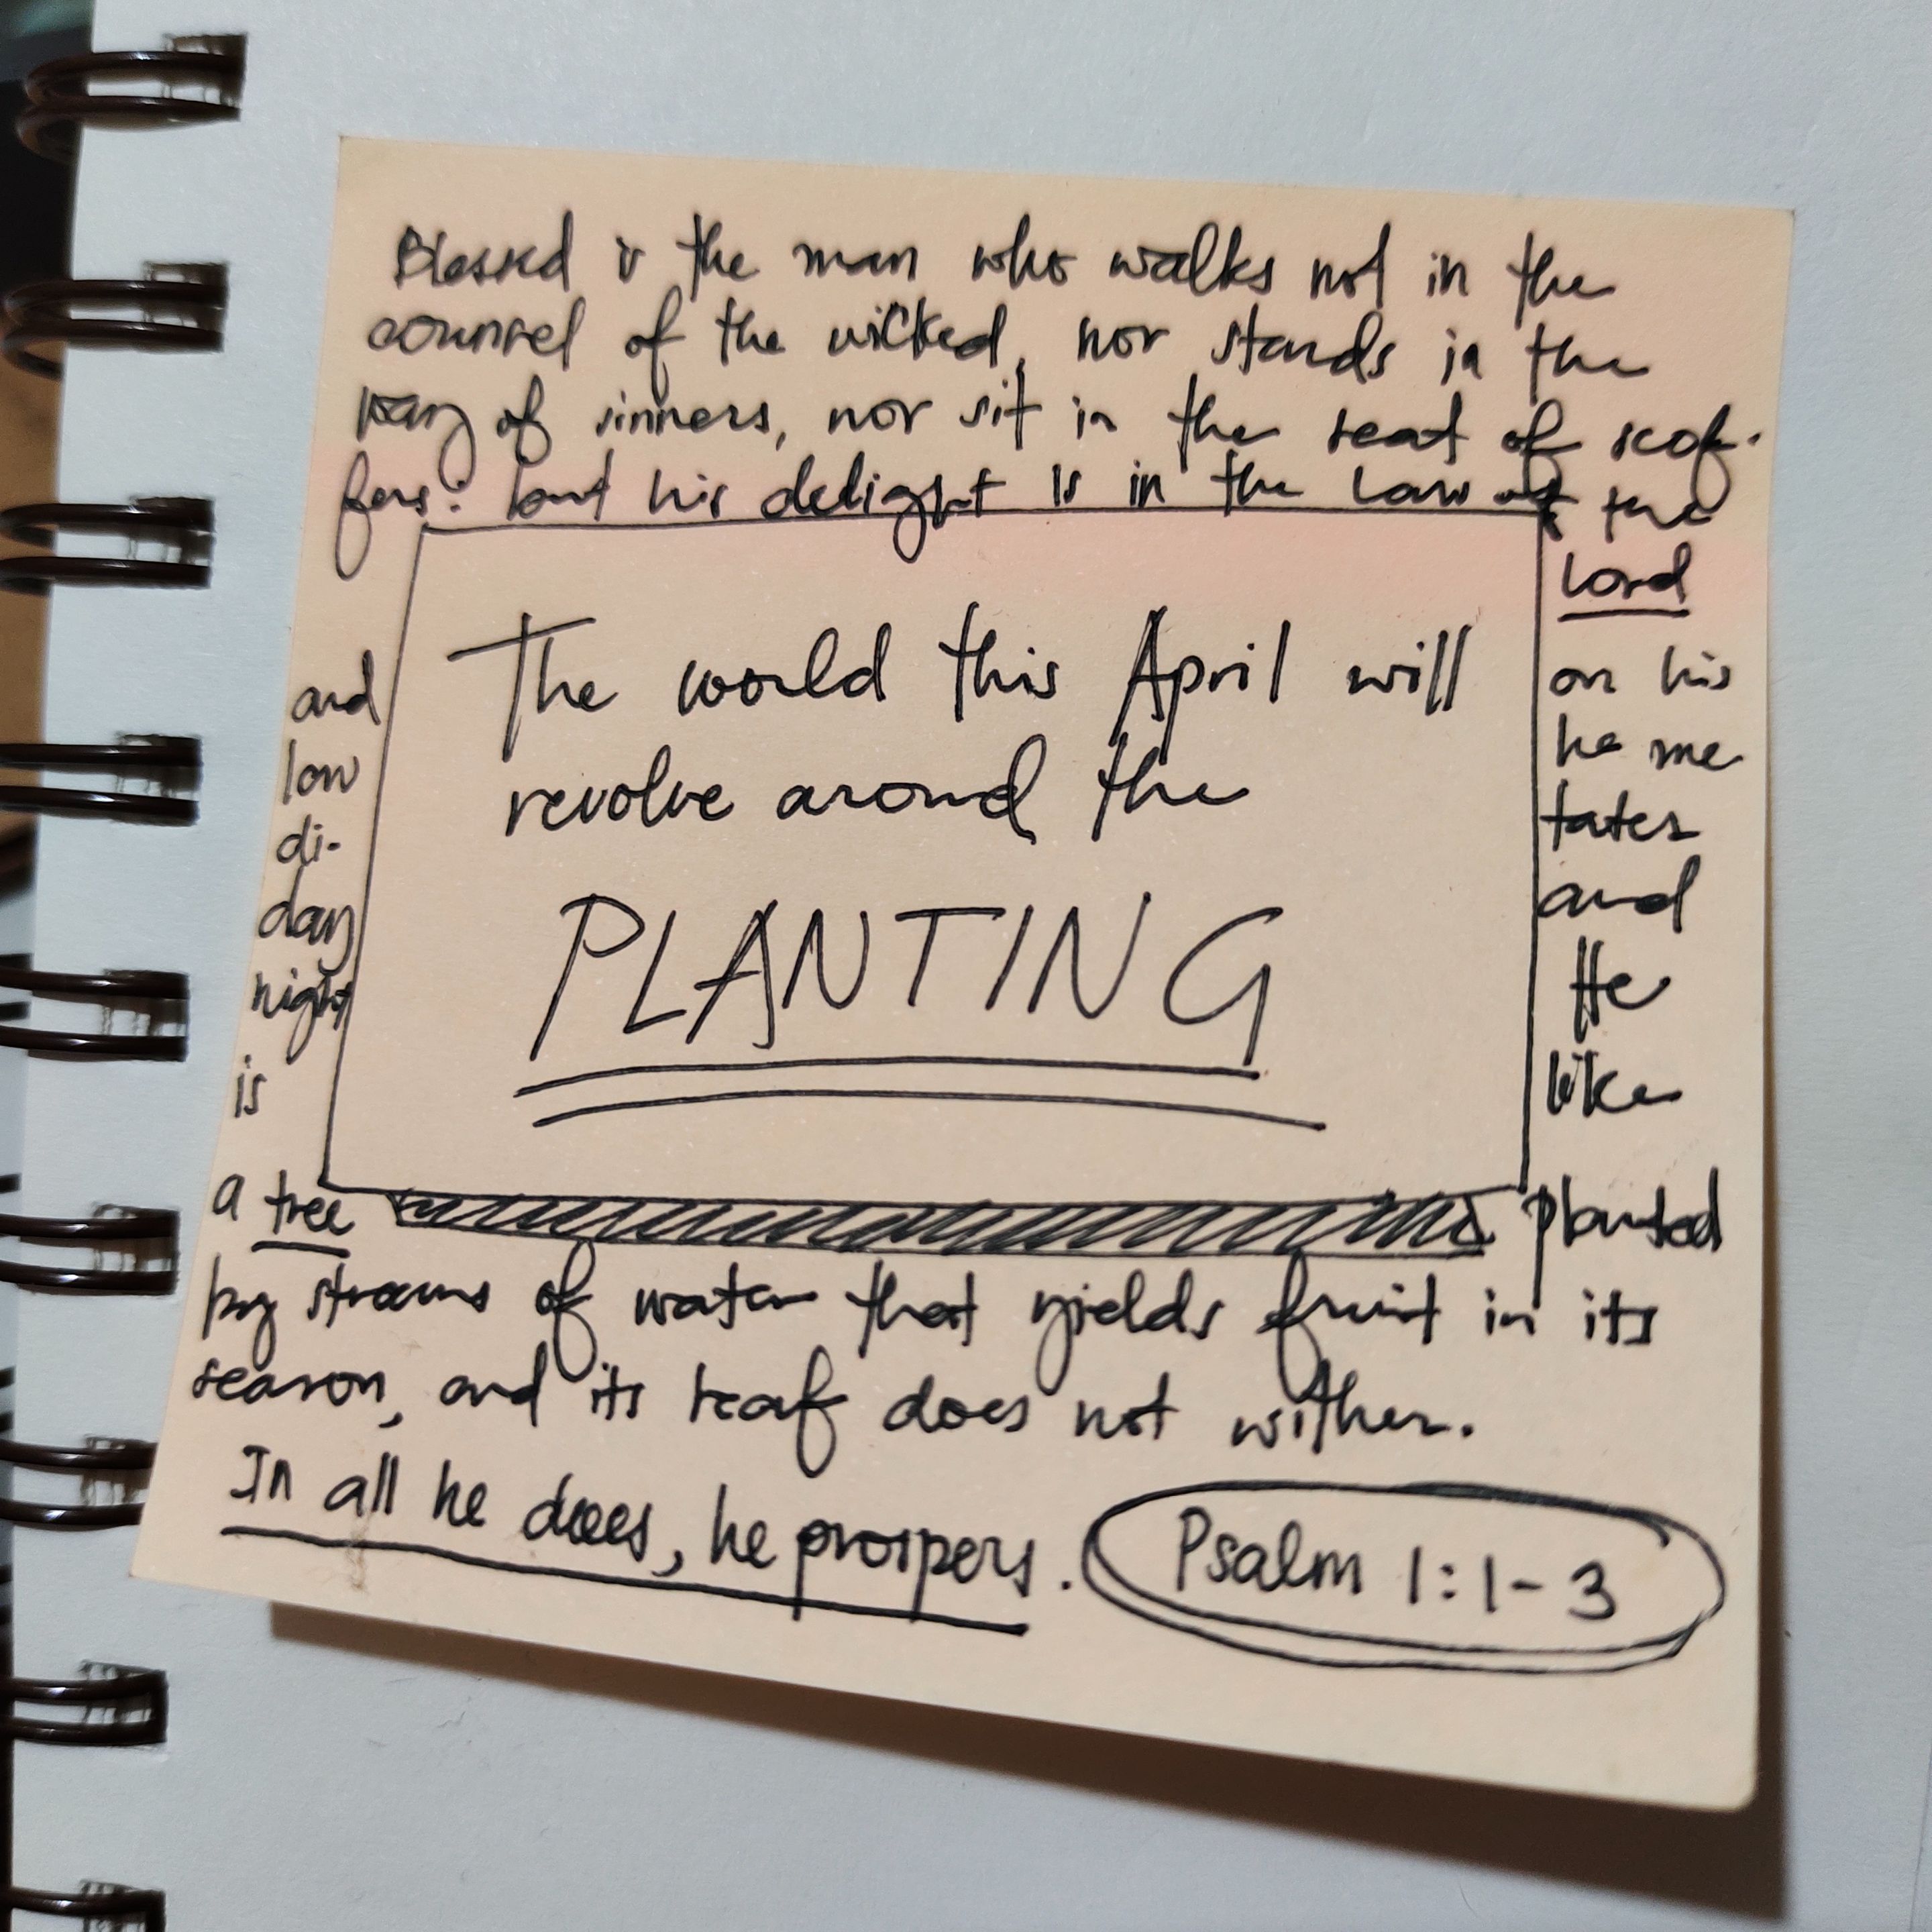 Blessed is the man who walks not in the
counsel of the wicked, nor stands in the
way of sinners, nor sit in the seat of scof-
fers: but his delight is in the law of the
Lord
and on his
law he me
di- tates
day and
night He
is like
a tree planted
by streams of water that yields fruit in its
season, and its leaf does not wither.
In all he does, he prospers.
Psalm 1:1-3
The world this April will
revolve around the
PLANTING